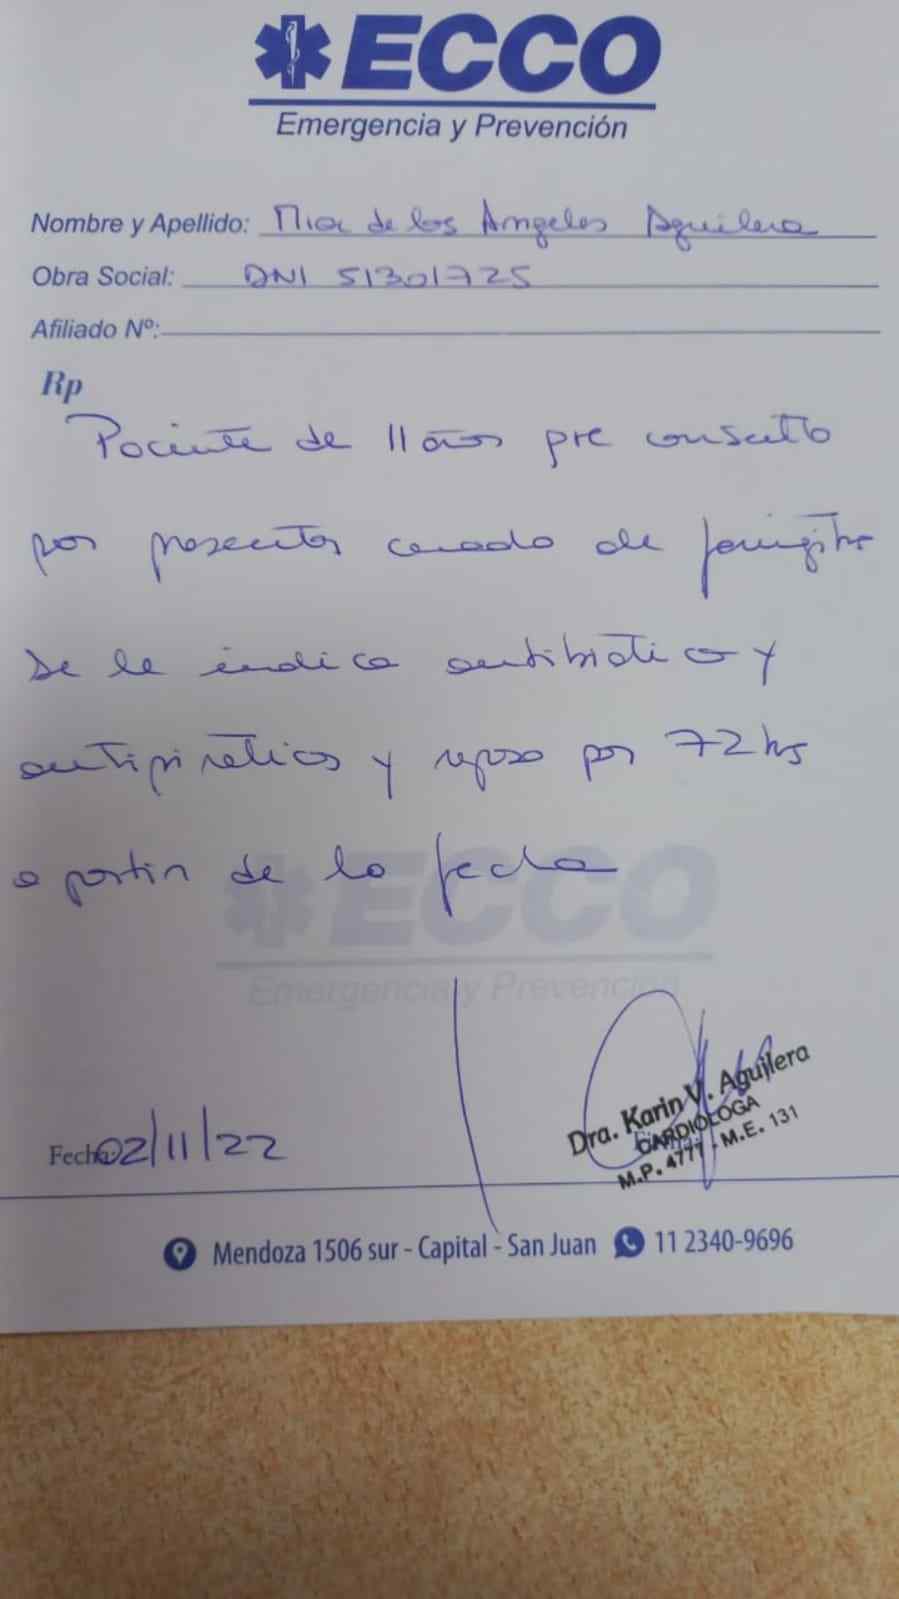 ECCO
Emergencia y Prevención
Nombre y Apellido: Mia de los Angeles Aguilera
Obra Social: DNI 51301725
Afiliado Nº:
Rp
Paciente de 11 años pre consulta
por presentar cuadro de faringitis
se le indica antibiotico y
antipireticos y reposo por 72 hs
a partir de la fecha
ECCO
Emergencia y Prevención
Dra. Karin V. Aguilera
CARDIOLOGA
M.P. 4777 - M.E. 131
Fecha: 02/11/22
Mendoza 1506 sur - Capital - San Juan 11 2340-9696